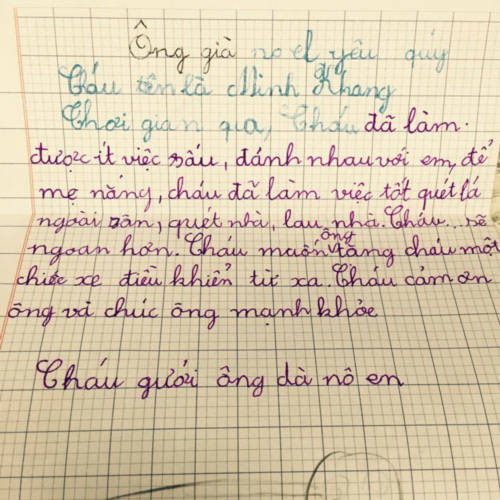 Ông già no el yêu quý
Cháu tên là Minh Khang
Thời gian qua, Cháu đã làm.
được ít việc sấu, đánh nhau với em, để
mẹ nắng, cháu đã làm việc tốt quét lá
ngoài sân, quét nhà, lau nhà. Cháu sẽ
ngoan hơn. Cháu muốn ông tăng cháu một
chiếc xe điều khiển từ xa. Cháu cảm ơn
ông và chúc ông mạnh khỏe
Cháu gưới ông dà nô en